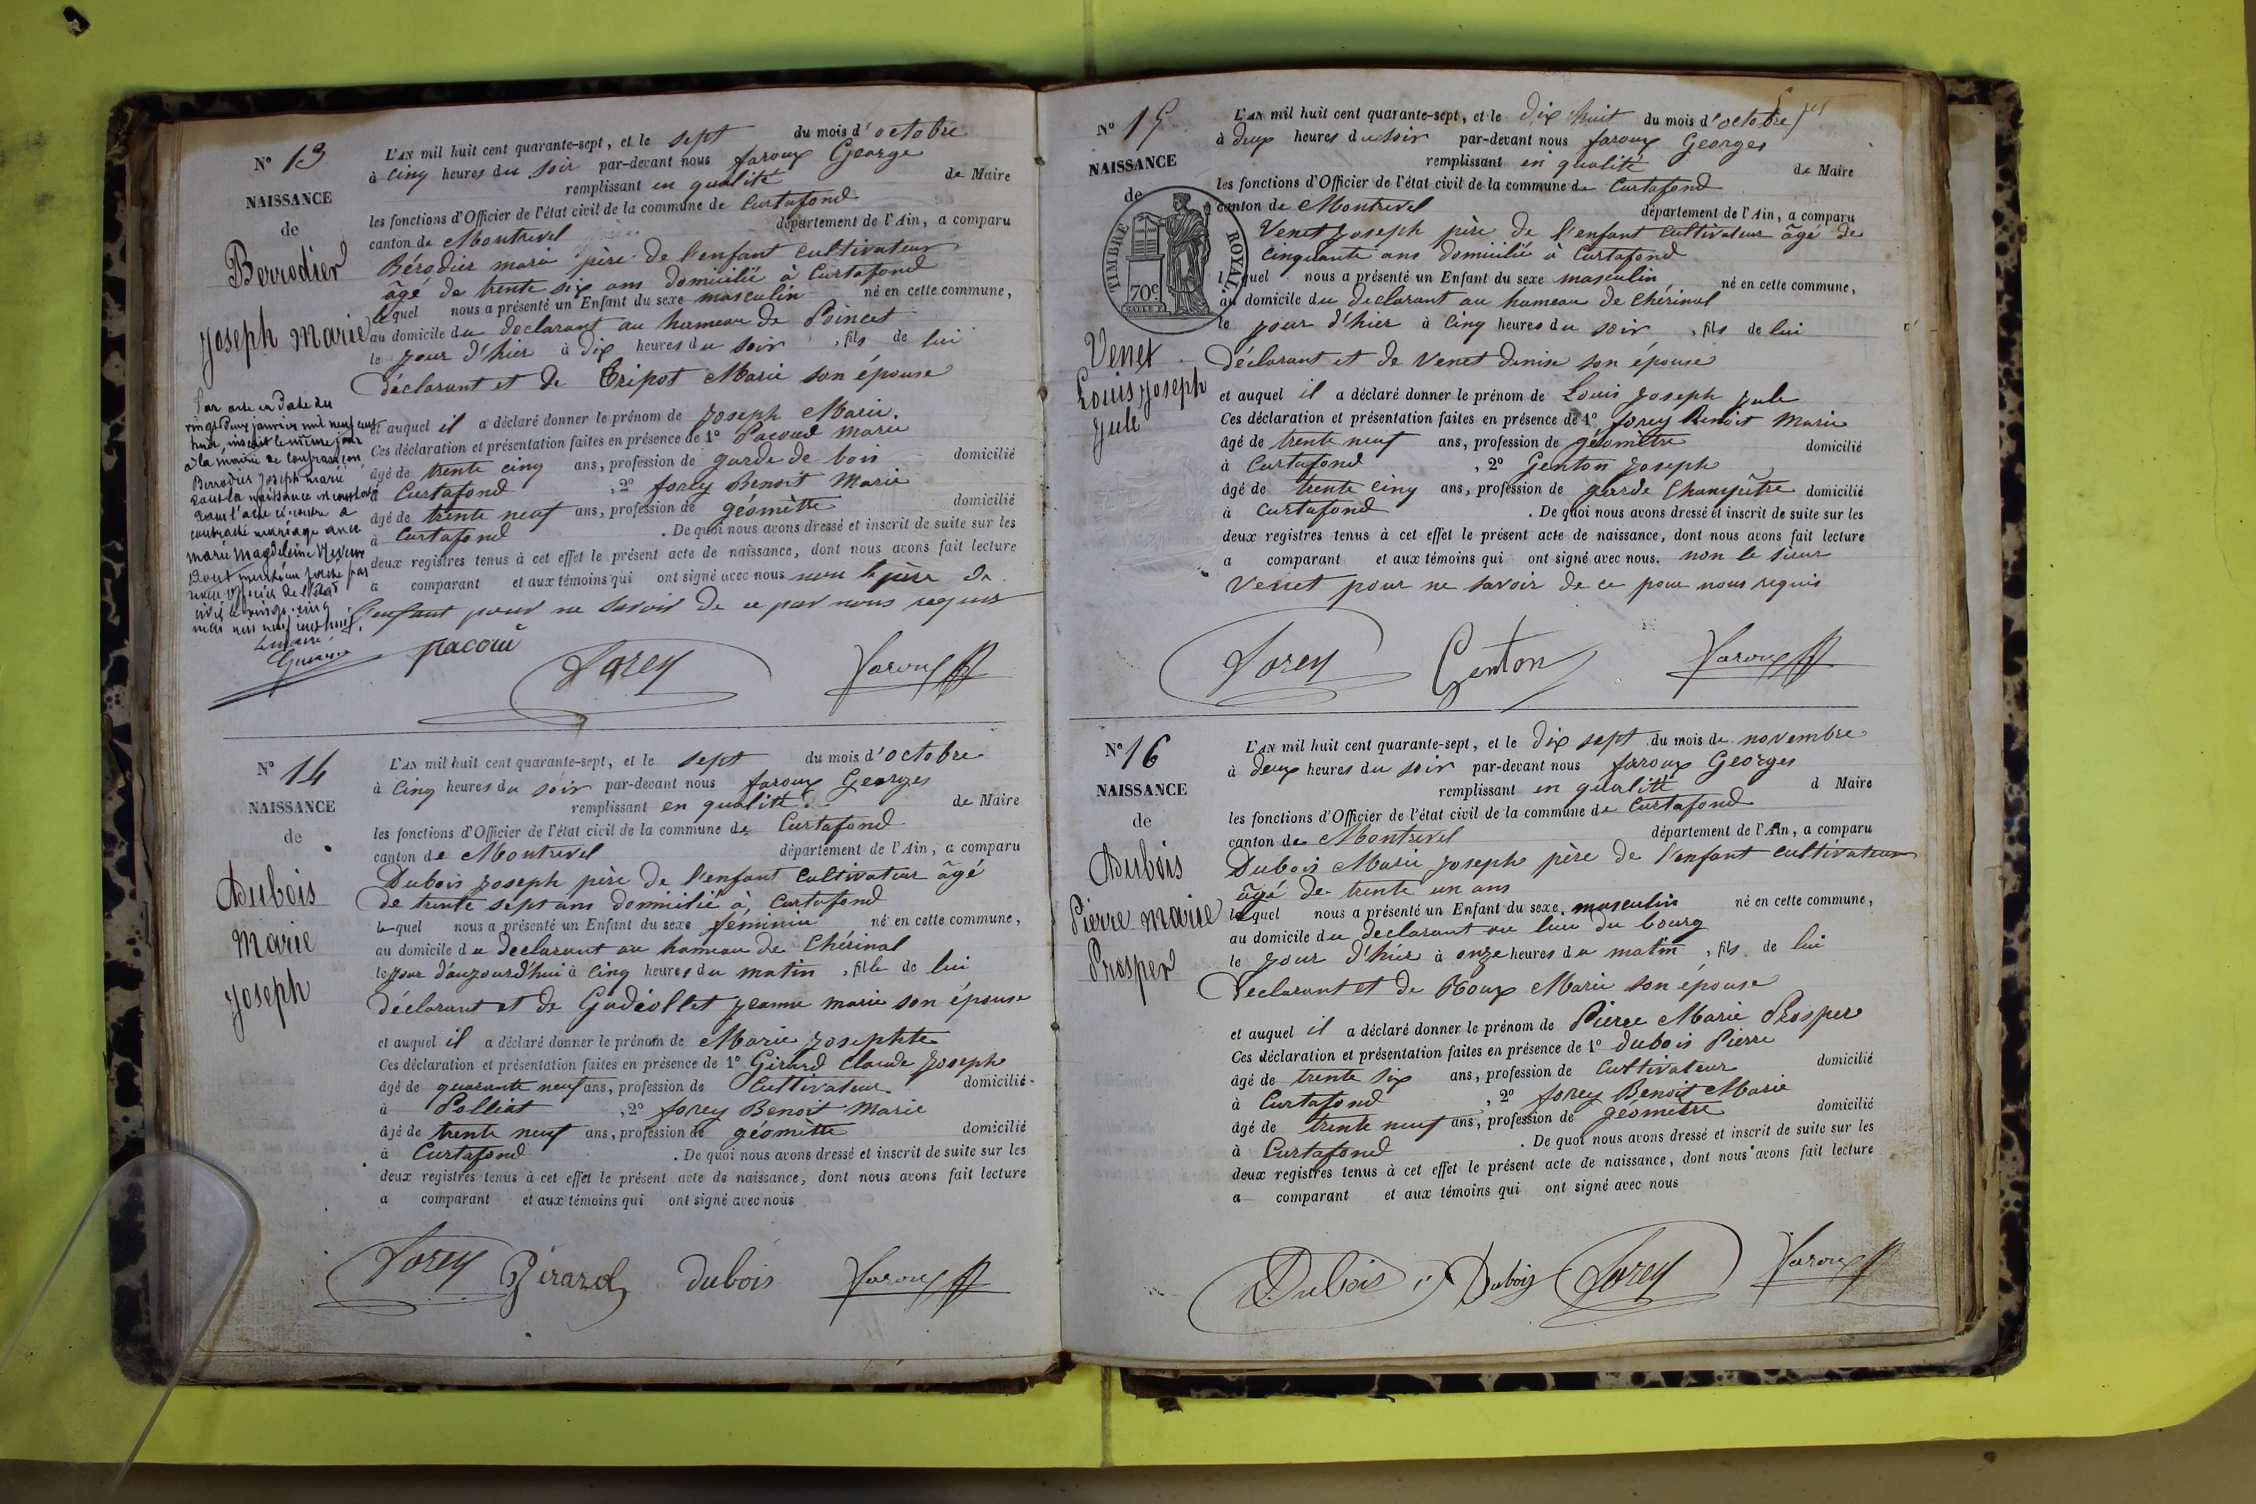 N° 13
NAISSANCE
de
Berrodier
Joseph Marie
L'AN mil huit cent quarante-sept, et le sept du mois d'octobre
à cinq heures du soir par-devant nous faroux George
remplissant en qualité de Maire
les fonctions d'Officier de l'état civil de la commune de Curtafond
canton de Montrevel département de l'Ain, a comparu
Bérodier marie père de l'enfant cultivateur
âgé de trente six ans domicilié à Curtafond
lequel nous a présenté un Enfant du sexe masculin né en cette commune,
au domicile du déclarant au hameau de Poincet
le jour d'hier à dix heures du soir, fils de lui
déclarant et de Tripot Marie son épouse
et auquel il a déclaré donner le prénom de Joseph Marie.
Ces déclaration et présentation faites en présence de 1° Pacoud Marie
âgé de trente cinq ans, profession de garde de bois domicilié
à Curtafond, 2° forey Benoit Marie
âgé de trente neuf ans, profession de géomètre domicilié
à Curtafond. De quoi nous avons dressé et inscrit de suite sur les
deux registres tenus à cet effet le présent acte de naissance, dont nous avons fait lecture
a comparant et aux témoins qui ont signé avec nous non le père de
l'enfant pour ne savoir de ce par nous requis
Par acte en date du
vingt deux janvier mil neuf cent
huit, inscrit le même jour
à la mairie de Confrançon
Berrodier Joseph Marie
dont la naissance est constatée
dans l'acte ci-contre a
contracté mariage avec
Marie Magdeleine
Dont mention portée par
nous officier de l'état
civil le vingt-cinq
mai mil neuf cent huit.
Le maire
pacoud
Forey
Faroux
N° 14
NAISSANCE
de
Dubois
Marie
Joseph
L'AN mil huit cent quarante-sept, et le sept du mois d'octobre
à cinq heures du soir par-devant nous faroux Georges
remplissant en qualité de Maire
les fonctions d'Officier de l'état civil de la commune de Curtafond
canton de Montrevel département de l'Ain, a comparu
Dubois Joseph père de l'enfant cultivateur âgé
de trente sept ans domicilié à Curtafond
lequel nous a présenté un Enfant du sexe féminin né en cette commune,
au domicile du déclarant au hameau de Chérinal
le jour d'aujourd'hui à cinq heures du matin, fille de lui
déclarant et de Gudéollet Jeanne Marie son épouse
et auquel il a déclaré donner le prénom de Marie Josephte
Ces déclaration et présentation faites en présence de 1° Girard Claude Joseph
âgé de quarante neuf ans, profession de Cultivateur domicilié
à Polliat, 2° forey Benoit Marie
âgé de trente neuf ans, profession de géomètre domicilié
à Curtafond. De quoi nous avons dressé et inscrit de suite sur les
deux registres tenus à cet effet le présent acte de naissance, dont nous avons fait lecture
a comparant et aux témoins qui ont signé avec nous
Forey Girard dubois Faroux
N° 15
NAISSANCE
de
TIMBRE ROYAL
70 c.
Venet
Louis Joseph
Jule
L'AN mil huit cent quarante-sept, et le dix huit du mois d'octobre
à deux heures du soir par-devant nous faroux Georges
remplissant en qualité de Maire
les fonctions d'Officier de l'état civil de la commune de Curtafond
canton de Montrevel département de l'Ain, a comparu
Venet Joseph père de l'enfant cultivateur âgé de
cinquante ans domicilié à Curtafond
lequel nous a présenté un Enfant du sexe masculin né en cette commune,
au domicile du déclarant au hameau de Chérinal
le jour d'hier à cinq heures du soir, fils de lui
déclarant et de Venet denise son épouse
et auquel il a déclaré donner le prénom de Louis Joseph Jule
Ces déclaration et présentation faites en présence de 1° forey Benoit Marie
âgé de trente neuf ans, profession de géomètre domicilié
à Curtafond, 2° Genton Joseph
âgé de trente cinq ans, profession de garde Champêtre domicilié
à Curtafond. De quoi nous avons dressé et inscrit de suite sur les
deux registres tenus à cet effet le présent acte de naissance, dont nous avons fait lecture
a comparant et aux témoins qui ont signé avec nous. non le sieur
Venet pour ne savoir de ce pour nous requis
Forey Genton Faroux
N° 16
NAISSANCE
de
Dubois
Pierre Marie
Prosper
L'AN mil huit cent quarante-sept, et le dix sept du mois de novembre
à deux heures du soir par-devant nous faroux Georges
remplissant en qualité d Maire
les fonctions d'Officier de l'état civil de la commune de Curtafond
canton de Montrevel département de l'Ain, a comparu
Dubois Marie Joseph père de l'enfant cultivateur
âgé de trente un ans
lequel nous a présenté un Enfant du sexe masculin né en cette commune,
au domicile du déclarant au lieu du bourg
le jour d'hier à onze heures du matin, fils de lui
déclarant et de Roux Marie son épouse
et auquel il a déclaré donner le prénom de Pierre Marie Prosper
Ces déclaration et présentation faites en présence de 1° dubois Pierre
âgé de trente six ans, profession de Cultivateur domicilié
à Curtafond, 2° forey Benoit Marie
âgé de trente neuf ans, profession de géomètre domicilié
à Curtafond. De quoi nous avons dressé et inscrit de suite sur les
deux registres tenus à cet effet le présent acte de naissance, dont nous avons fait lecture
a comparant et aux témoins qui ont signé avec nous
Dubois Dubois Forey Faroux